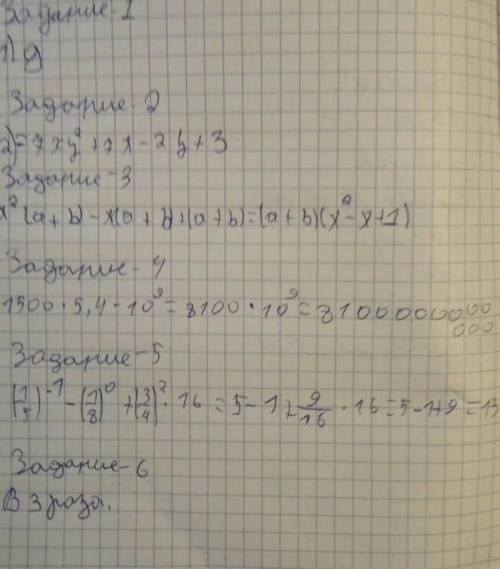 Задание-1
1) д
Задание-2
2)=7xy²+7x-2y+3
Задание-3
x²(a+b)-x(a+b)+(a+b)=(a+b)(x²-x+1)
Задание-4
1500·5,4·10⁹=8100·10⁹=8100000000000
Задание-5
(1/5)⁻¹-(1/8)⁰+(3/4)²·16=5-1+9/16·16=5-1+9=13
Задание-6
В 3 раза.